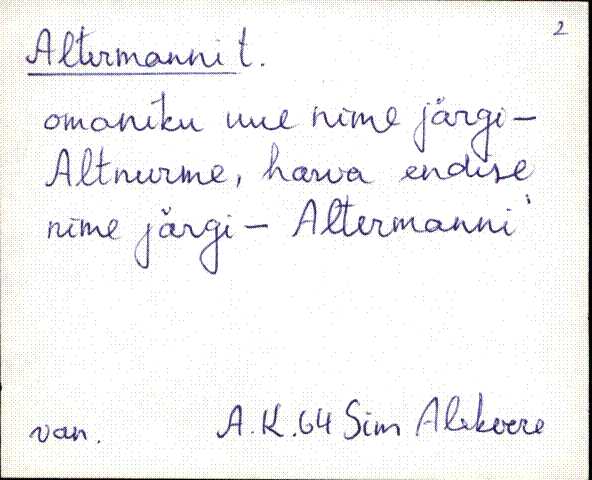 2
Altermanni t.
omaniku uue nime järgi –
Altnurme, harva endise
nime järgi – Altermanni
van. A. K. 64 Sim Alekvere